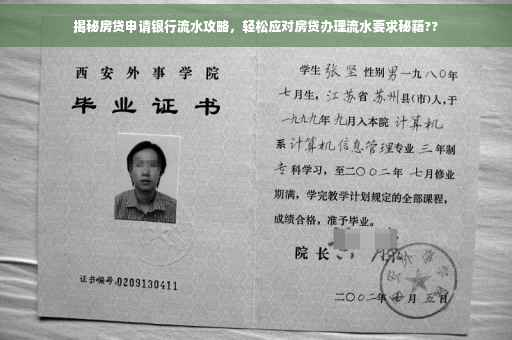 揭秘房贷申请银行流水攻略，轻松应对房贷办理流水要求秘籍??
西安外事学院
毕业证书
证书编号:0209130411
学生 张坚 性别 男 一九八〇年
七月生，江苏省苏州县(市)人，于
一九九九年 九月入本院 计算机
系 计算机信息管理专业 三 年制
专 科学习，至二〇〇二年 七月修业
期满，学完教学计划规定的全部课程，
成绩合格，准予毕业。
院长
二〇〇二年 七 月 五 日